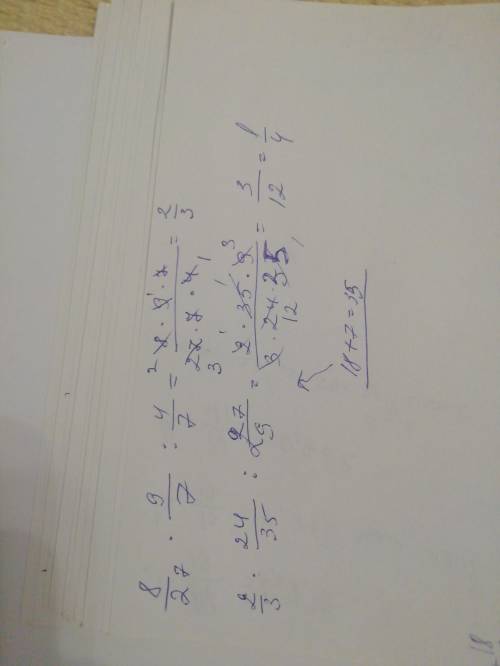 8/27 · 9/7 : 4/7 = 8·9·7/27·7·4 = 2/3
2/3 · 24/35 : 27/29 = 2·35·9/3·24·35 = 3/12 = 1/4
18+7=35
18